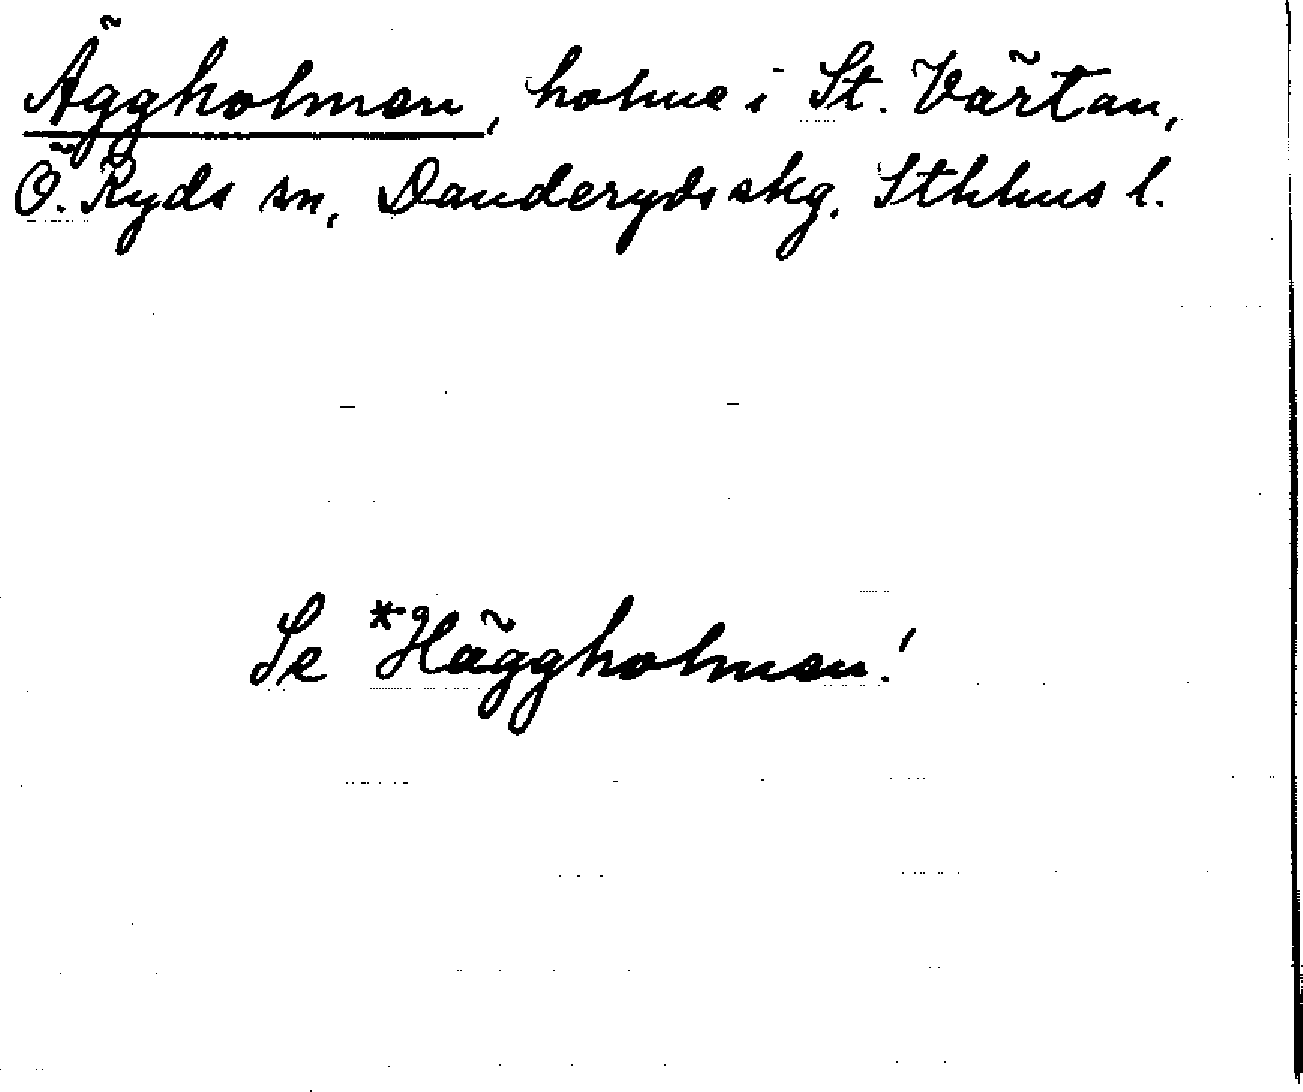 Äggholmen, holme i St. Värtan,
Ö. Ryds sn, Danderyds skg. Sthlms l.
Se *Häggholmen!